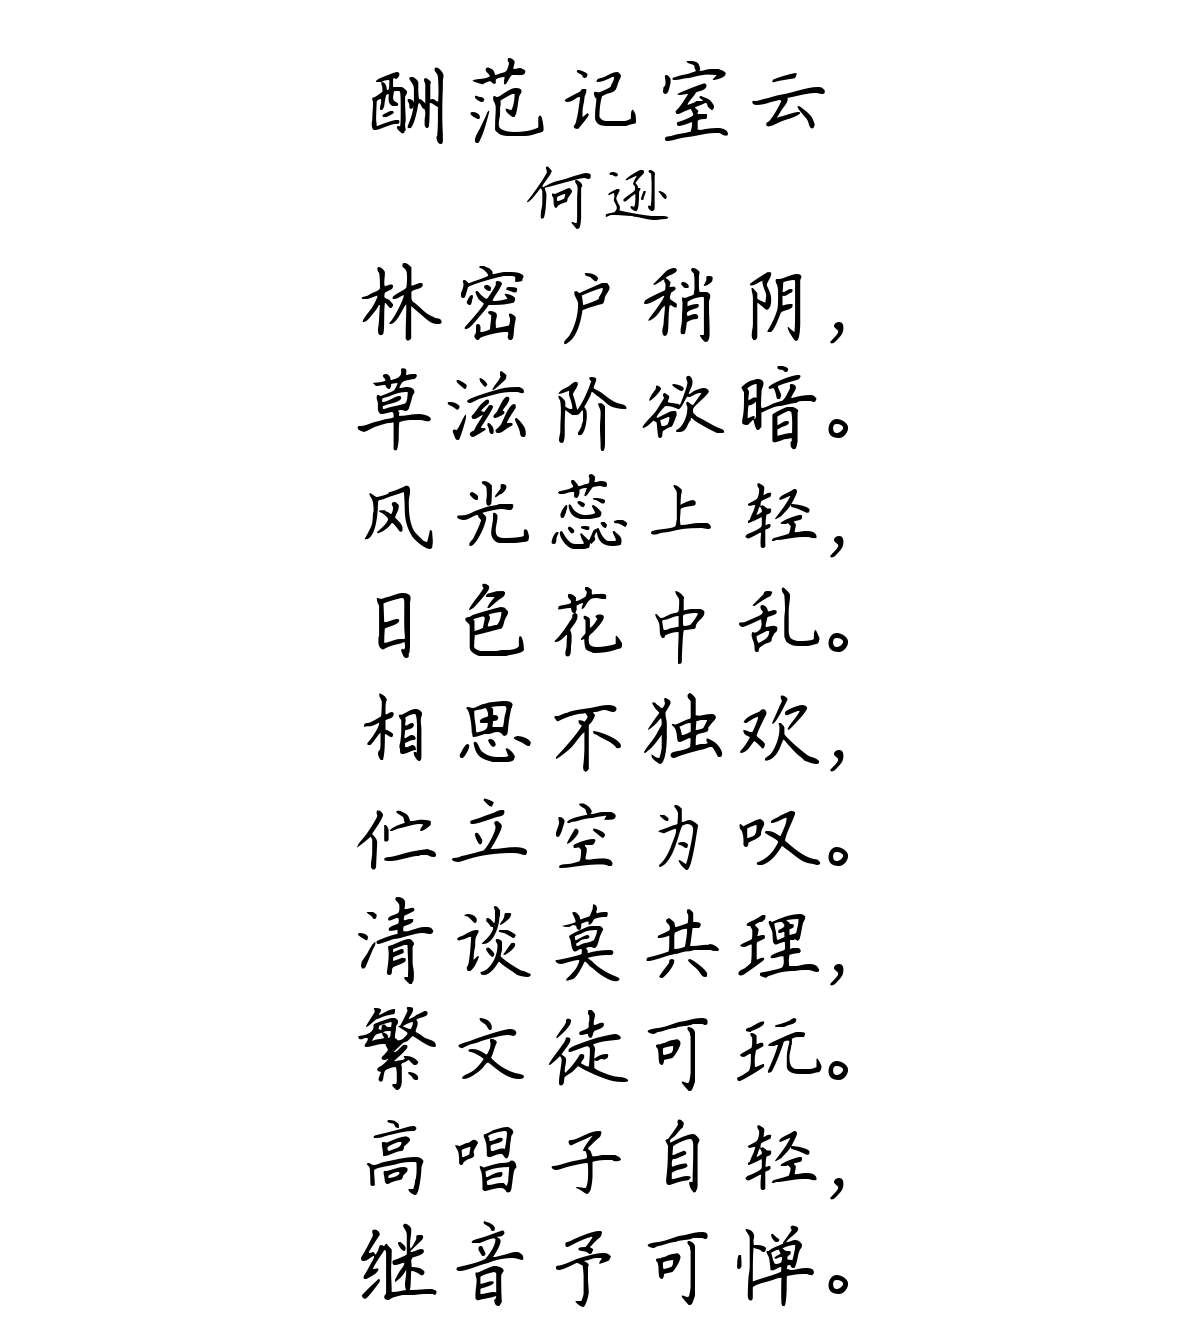 酬范记室云
何逊
林密户稍阴，
草滋阶欲暗。
风光蕊上轻，
日色花中乱。
相思不独欢，
伫立空为叹。
清谈莫共理，
繁文徒可玩。
高唱子自轻，
继音予可惮。